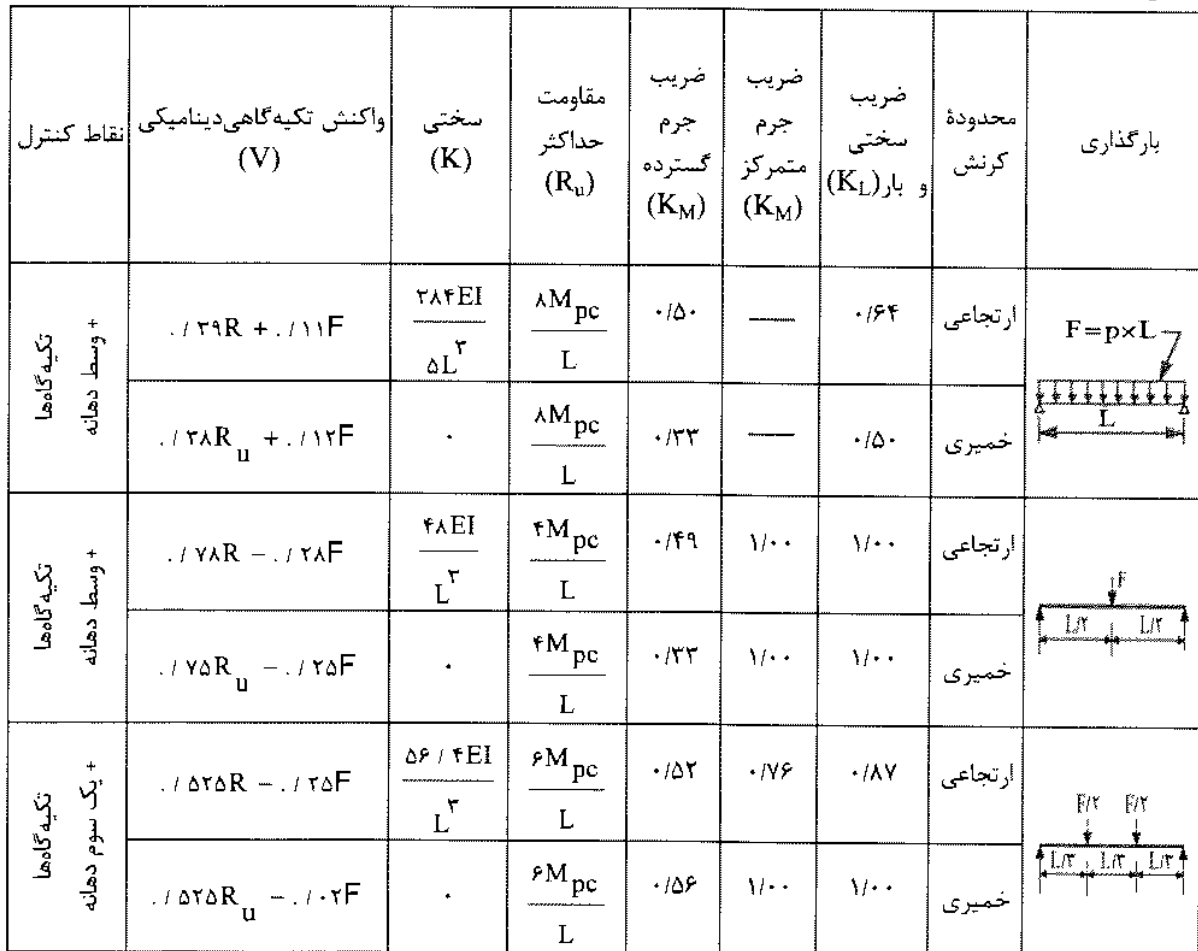 بارگذاری
محدودهٔ
کرنش
ضریب
سختی
و بار(K_L)
ضریب
جرم
متمرکز
(K_M)
ضریب
جرم
گسترده
(K_M)
مقاومت
حداکثر
(R_u)
سختی
(K)
واکنش تکیه‌گاهی دینامیکی
(V)
نقاط کنترل
F=p×L
L
ارتجاعی
۰/۶۴
—
۰/۵۰
۸M_pc
L
۳۸۴EI
۵L^۳
۰/۳۹R + ۰/۱۱F
+ وسط دهانه
تکیه‌گاه‌ها
خمیری
۰/۵۰
—
۰/۳۳
۸M_pc
L
۰
۰/۳۸R_u + ۰/۱۲F
F
L/۲ L/۲
ارتجاعی
۱/۰۰
۱/۰۰
۰/۴۹
۴M_pc
L
۴۸EI
L^۳
۰/۷۸R − ۰/۲۸F
+ وسط دهانه
تکیه‌گاه‌ها
خمیری
۱/۰۰
۱/۰۰
۰/۳۳
۴M_pc
L
۰
۰/۷۵R_u − ۰/۲۵F
F/۲ F/۲
L/۳ L/۳ L/۳
ارتجاعی
۰/۸۷
۰/۷۶
۰/۵۲
۶M_pc
L
۵۶/۴EI
L^۳
۰/۵۲۵R − ۰/۲۵F
+ یک سوم دهانه
تکیه‌گاه‌ها
خمیری
۱/۰۰
۱/۰۰
۰/۵۶
۶M_pc
L
۰
۰/۵۲۵R_u − ۰/۰۲F